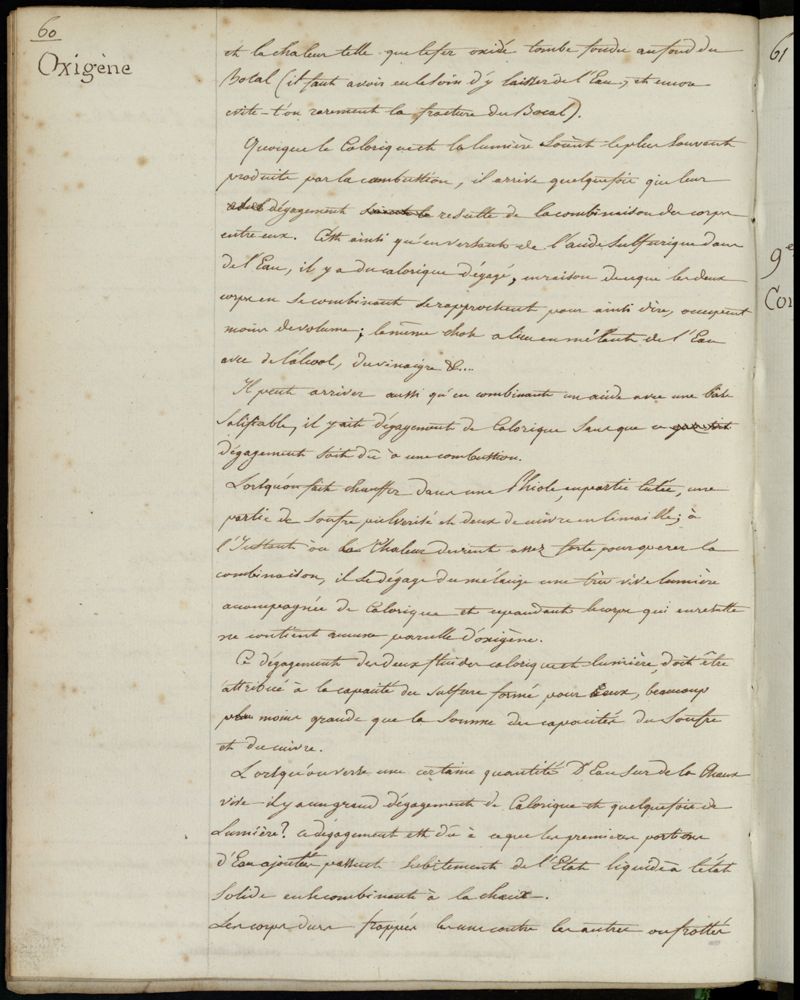 60
Oxigène
et la chaleur telle que le fer oxidé tombe fondu au fond du
Bocal (il faut avoir eu le soin d'y laisser de l'Eau, et encore
evite-t'on rarement la fracture du Bocal).
Quoique le Calorique et la lumière soient le plus souvent
produits par la combustion, il arrive quelquefois que leur
dégagement resulte de la combinaison des corps
entre eux. C'est ainsi qu'en versant de l'acide sulfurique dans
de l'Eau, il y a du calorique dégagé, en raison de ce que les deux
corps en se combinant se rapprochent pour ainsi dire, occupent
moins de volume; la même chose a lieu en mêlant de l'Eau
avec de l'alcool, du vinaigre &...
Il peut arriver aussi qu'en combinant un acide avec une base
Salifiable, il y ait dégagement de Calorique sans que ce
dégagement soit dû à une combustion.
Lorsqu'on fait chauffer dans une Phiole en partie lutée, une
partie de Soufre pulverisé et deux de cuivre en limaille; à
l'Instant où la Chaleur devient assez forte pour operer la
combinaison, il se dégage du mélange une très vive lumière
accompagnée de Calorique et cependant le corps qui en resulte
ne contient aucune parcelle d'oxigène.
Ce dégagement des deux fluides calorique et lumière, doit être
attribué à la capacité du sulfure formé pour eux, beaucoup
moins grande que la Somme des capacités du Soufre
et du cuivre.
Lorsqu'on verse une certaine quantité D'Eau sur de la Chaux
vive il y a un grand dégagement de Calorique et quelquefois de
Lumière? ce dégagement est dû à ce que les premieres portions
d'Eau ajoutée passent subitement de l'Etat liquide à l'état
Solide en se combinant à la chaux.
Les corps durs frappés les uns contre les autres ou frottés
61
9e
Cor